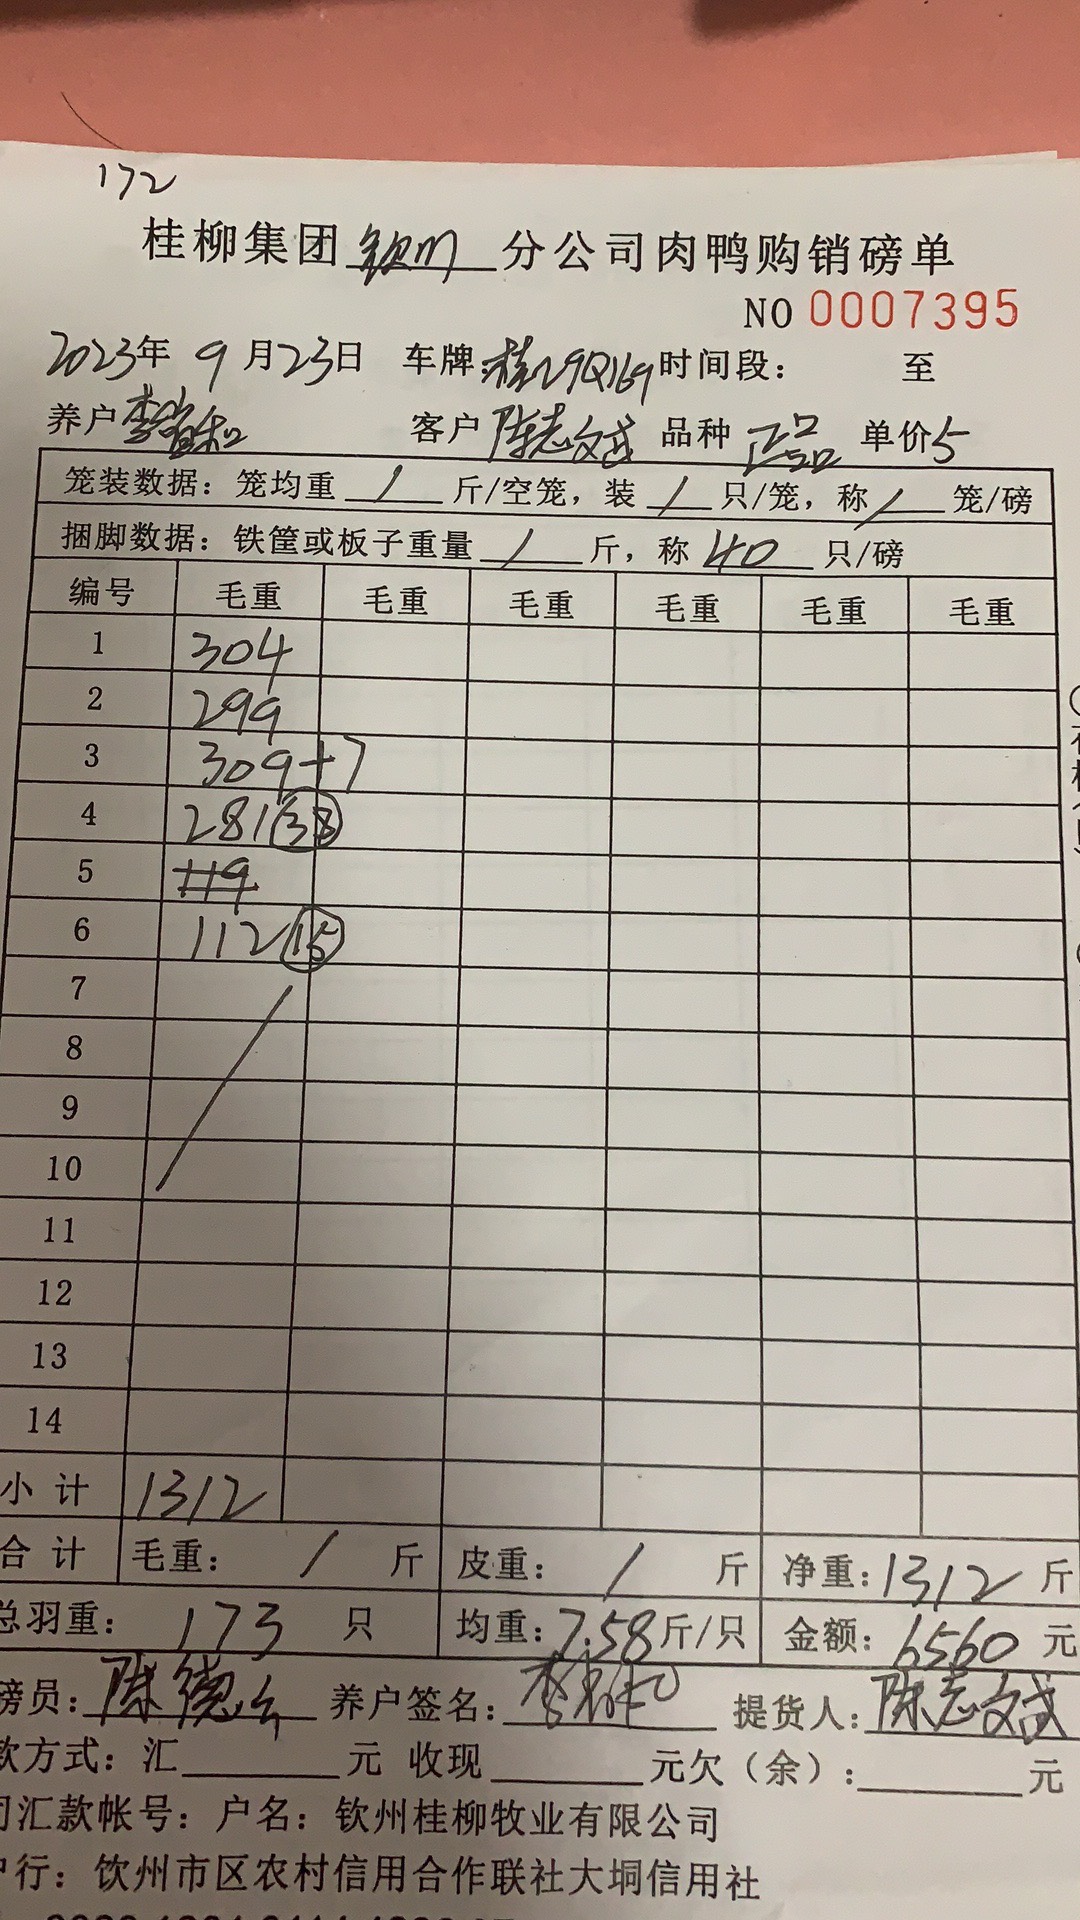 172
桂柳集团钦州分公司肉鸭购销磅单
NO 0007395
2023年 9月23日 车牌:桂 时间段: 至
养户李 客户陈志文 品种 正品 单价5
笼装数据：笼均重 / 斤/空笼，装 / 只/笼，称 / 笼/磅
捆脚数据：铁筐或板子重量 / 斤，称 40 只/磅
编号 毛重 毛重 毛重 毛重 毛重 毛重
1 304
2 299
3 309+7
4 281 38
5
6 112 15
7
8
9
10
11
12
13
14
小 计 1312
合 计 毛重: / 斤 皮重: / 斤 净重:1312斤
总羽重: 173 只 均重:7.58斤/只 金额:6560元
磅员:陈德 养户签名:李 提货人:陈志文
款方式：汇 元 收现 元欠（余）: 元
司汇款帐号：户名：钦州桂柳牧业有限公司
户行：钦州市区农村信用合作联社大垌信用社